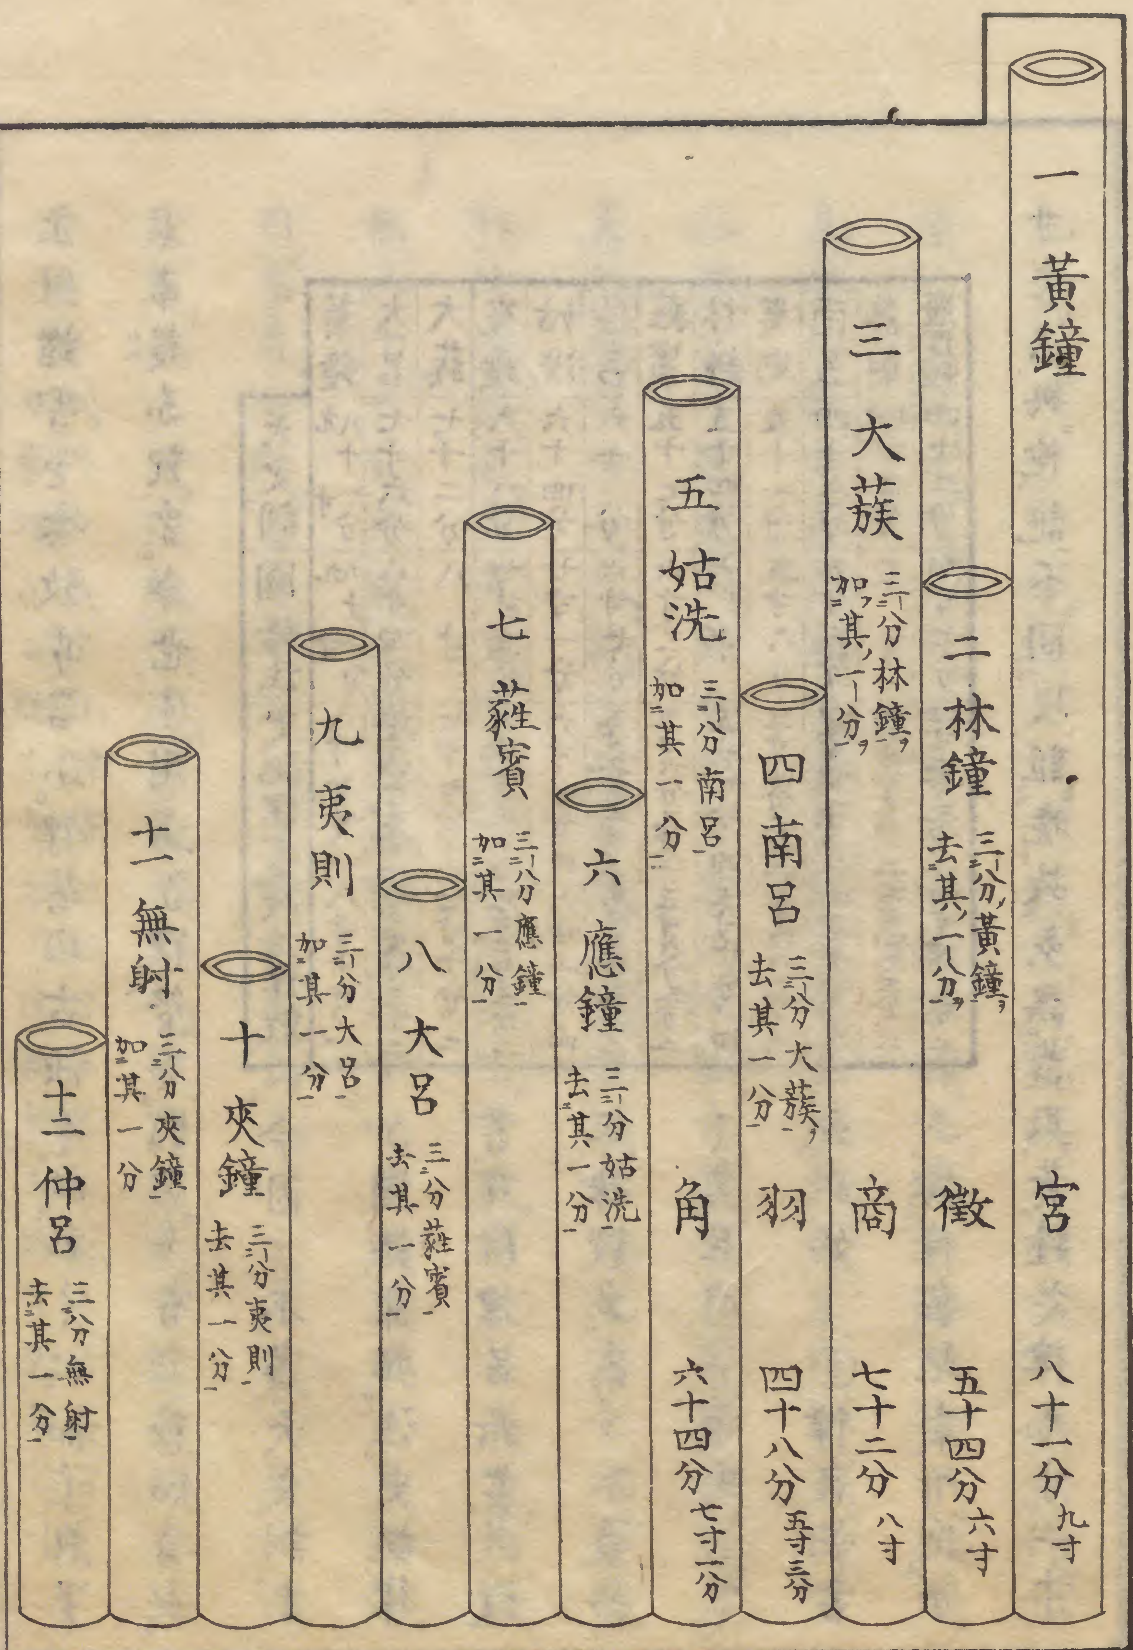 一 黃鐘 宮 八十一分 九寸
二 林鐘 三分黃鐘
去其一分 徵 五十四分 六寸
三 大蔟 三分林鐘
加其一分 商 七十二分 八寸
四 南呂 三分大蔟
去其一分 羽 四十八分 五寸三分
五 姑洗 三分南呂
加其一分 角 六十四分 七寸一分
六 應鐘 三分姑洗
去其一分
七 蕤賓 三分應鐘
加其一分
八 大呂 三分蕤賓
去其一分
九 夷則 三分大呂
加其一分
十 夾鐘 三分夷則
去其一分
十一 無射 三分夾鐘
加其一分
十二 仲呂 三分無射
去其一分